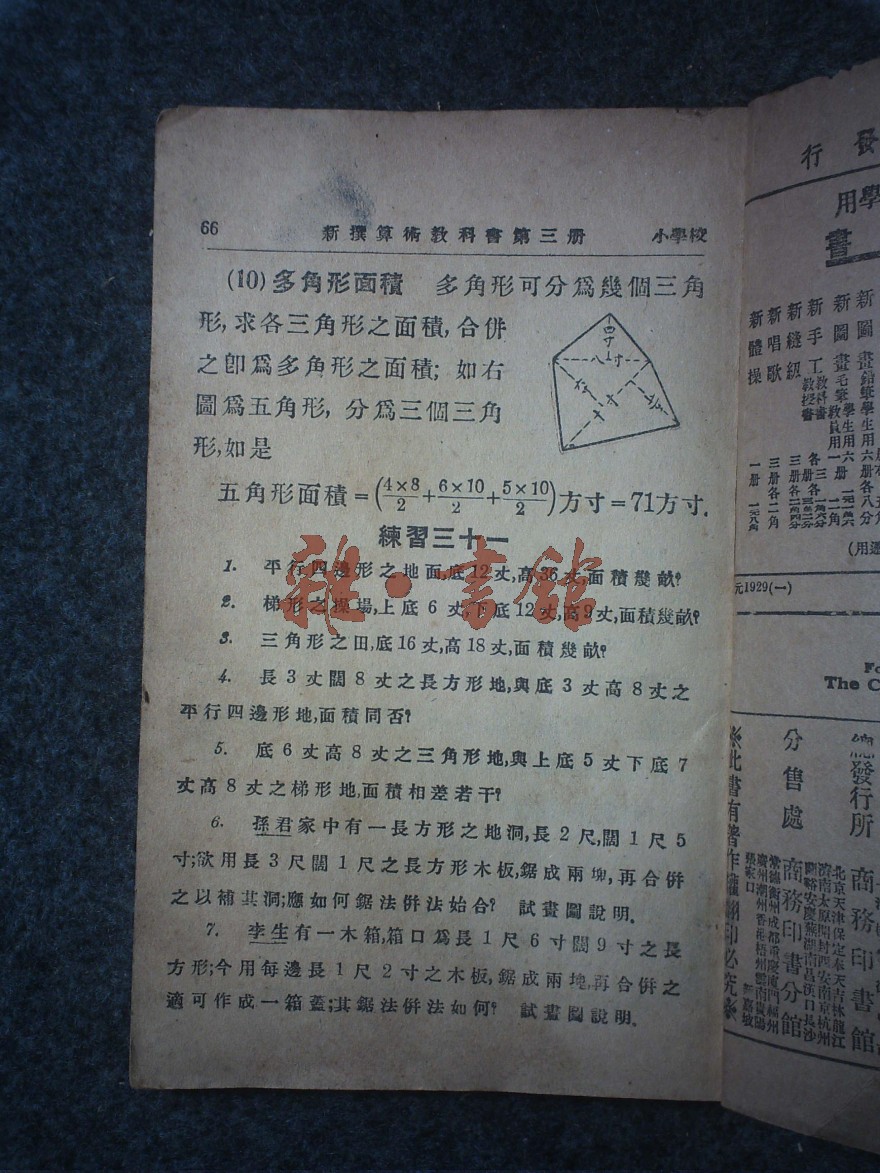 66 新撰算術教科書第三册 小學校
(10) 多角形面積 多角形可分爲幾個三角
形,求各三角形之面積,合併
之卽爲多角形之面積; 如右
圖爲五角形, 分爲三個三角
形,如是
四寸
八寸
五角形面積=(4×8/2+6×10/2+5×10/2)方寸=71方寸.
練習三十一
1. 平行四邊形之地面,底12丈,高36丈,面積幾畝?
2. 梯形之操場,上底6丈,下底12丈,高9丈,面積幾畝?
3. 三角形之田,底16丈,高18丈,面積幾畝?
4. 長3丈闊8丈之長方形地,與底3丈高8丈之
平行四邊形地,面積同否?
5. 底6丈高8丈之三角形地,與上底5丈下底7
丈高8丈之梯形地,面積相差若干?
6. 孫君家中有一長方形之地洞,長2尺,闊1尺5
寸;欲用長3尺闊1尺之長方形木板,鋸成兩塊,再合併
之以補其洞;應如何鋸法併法始合? 試畫圖說明.
7. 李生有一木箱,箱口爲長1尺6寸闊9寸之長
方形;今用每邊長1尺2寸之木板,鋸成兩塊,再合併之
適可作成一箱蓋;其鋸法併法如何? 試畫圖說明.
雜·書館
行 發
用 學
書
新圖畫
新圖畫
新手工
新縫級
新唱歌
新體操
元1929(一)
The C
總發行所 商務印書館
分售處 商務印書分館
※此書有著作權翻印必究※